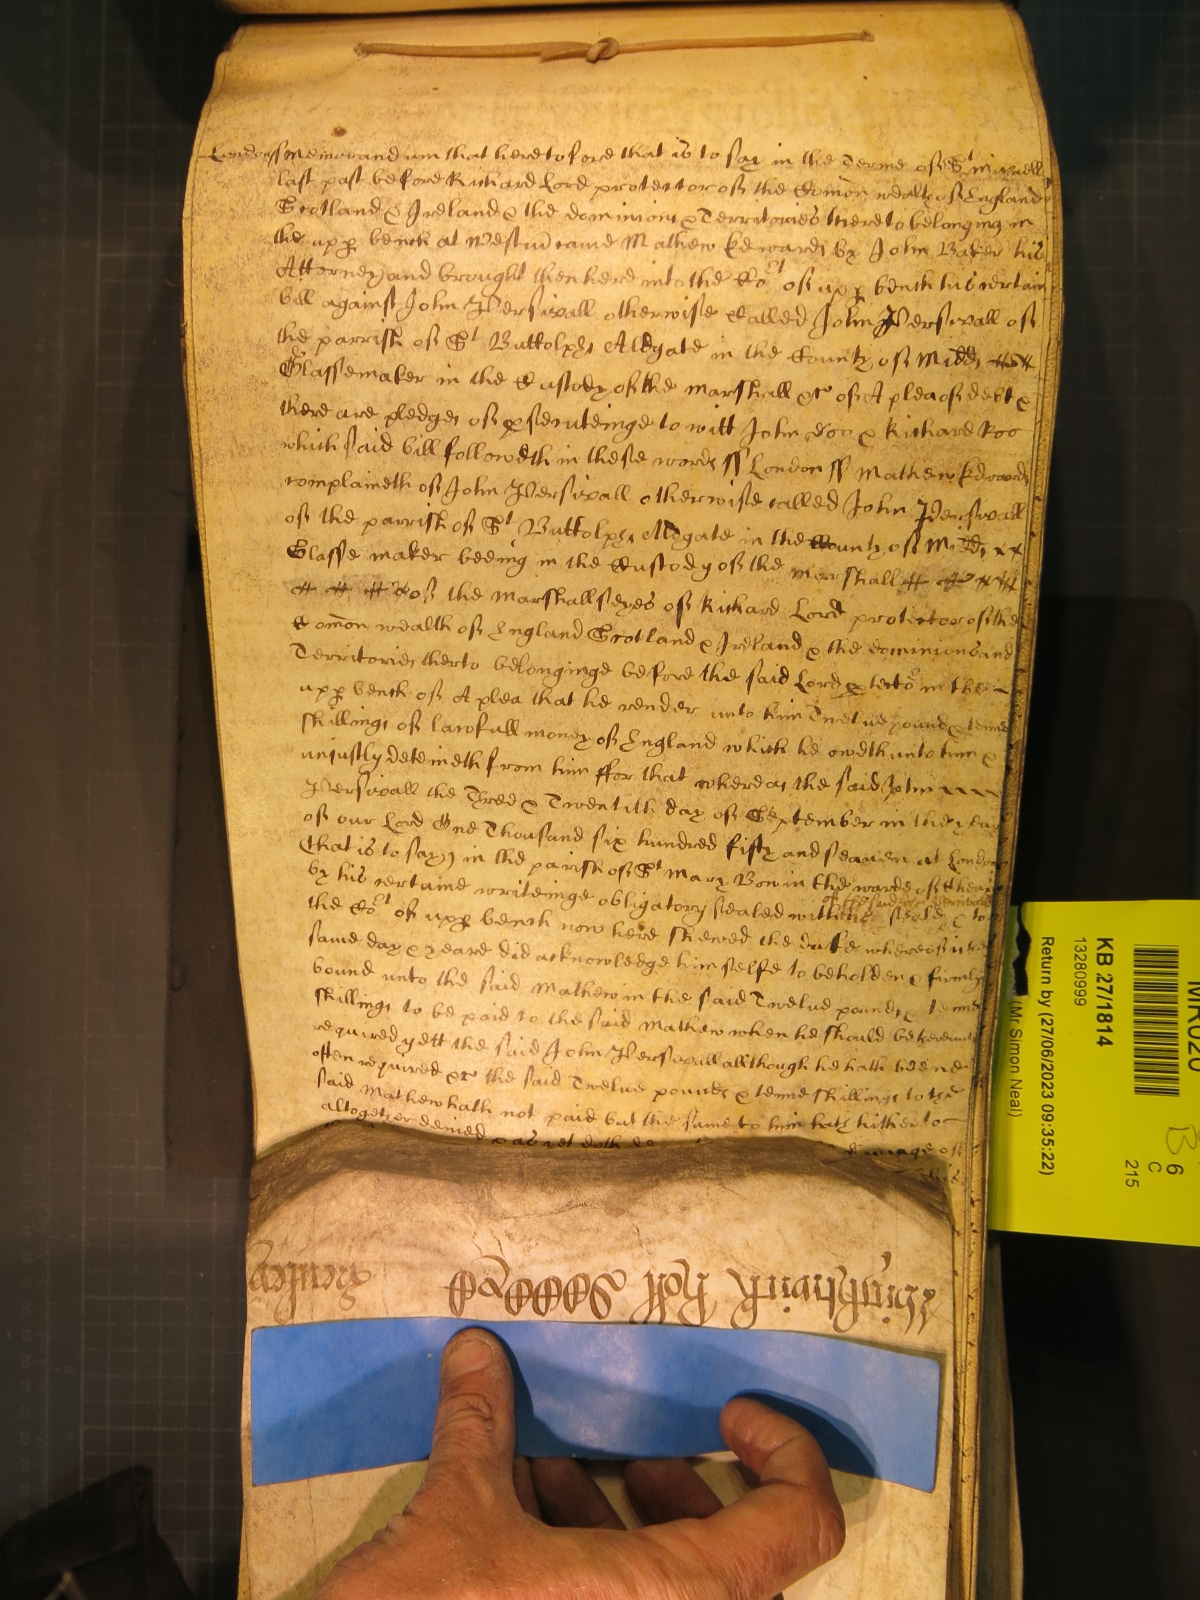 London ss Memorandum that heretofore that is to say in the Terme of St Michaell
last past before Richard Lord protector of the Comon wealth of England
Scotland & Ireland & the dominions & Territories thereto belonging in
the upp bench at Westm came Mathew Edwards by John Baker his
Attorney and brought then here into the Cort of upp bench his certain
bill against John Persivall otherwise called John Persivall of
the parrish of St Buttolphs Aldgate in the County of Midd
Glassemaker in the Custody of the Marshall &c of A plea of debt &
there are pledges of psecuteinge to witt John Doo & Richard Roo
which said bill followeth in these words ss London ss Mathew Edwards
complaineth of John Persivall otherwise called John Persivall
of the parrish of St Buttolphs Aldgate in the County of Midd
Glasse maker beeing in the Custody of the Marshall
of the Marshallseyes of Richard Lord protector of the
Comon wealth of England Scotland & Ireland & the dominions and
Territories therto belonginge before the said Lord ptector in the
upp bench of A plea that he render unto him Twelve pounds & tenne
shillings of lawfull money of England which he oweth unto him &
unjustly deteineth from him ffor that whereas the said John
Persivall the Three & Twentith day of September in the year
of our Lord One Thousand six hundred fifty and seaven at London
(that is to say) in the parish of St Mary Bow in the warde of Cheap
by his certaine writeinge obligatory sealed with the seale & to
the Cort of upp bench now here shewed the date whereof is the
same day & yeare did acknowledge him selfe to beholden & firmly
bound unto the said Mathew in the said Twelve pounds & tenne
shillings to be paid to the said Mathew when he should be thereunto
required yett the said John Persivall allthough he hath beene
often required &c the said Twelve pounds & tenne shillings to the
said Mathew hath not paid but the same to him hath hitherto
altogether denied & as yet doth de damage of
this
Hinkshwick Roll
MR020
KB 27/1814
13280999
Return by (27/06/2023 09:35:22)
(Mr Simon Neal)
B 6
C
215